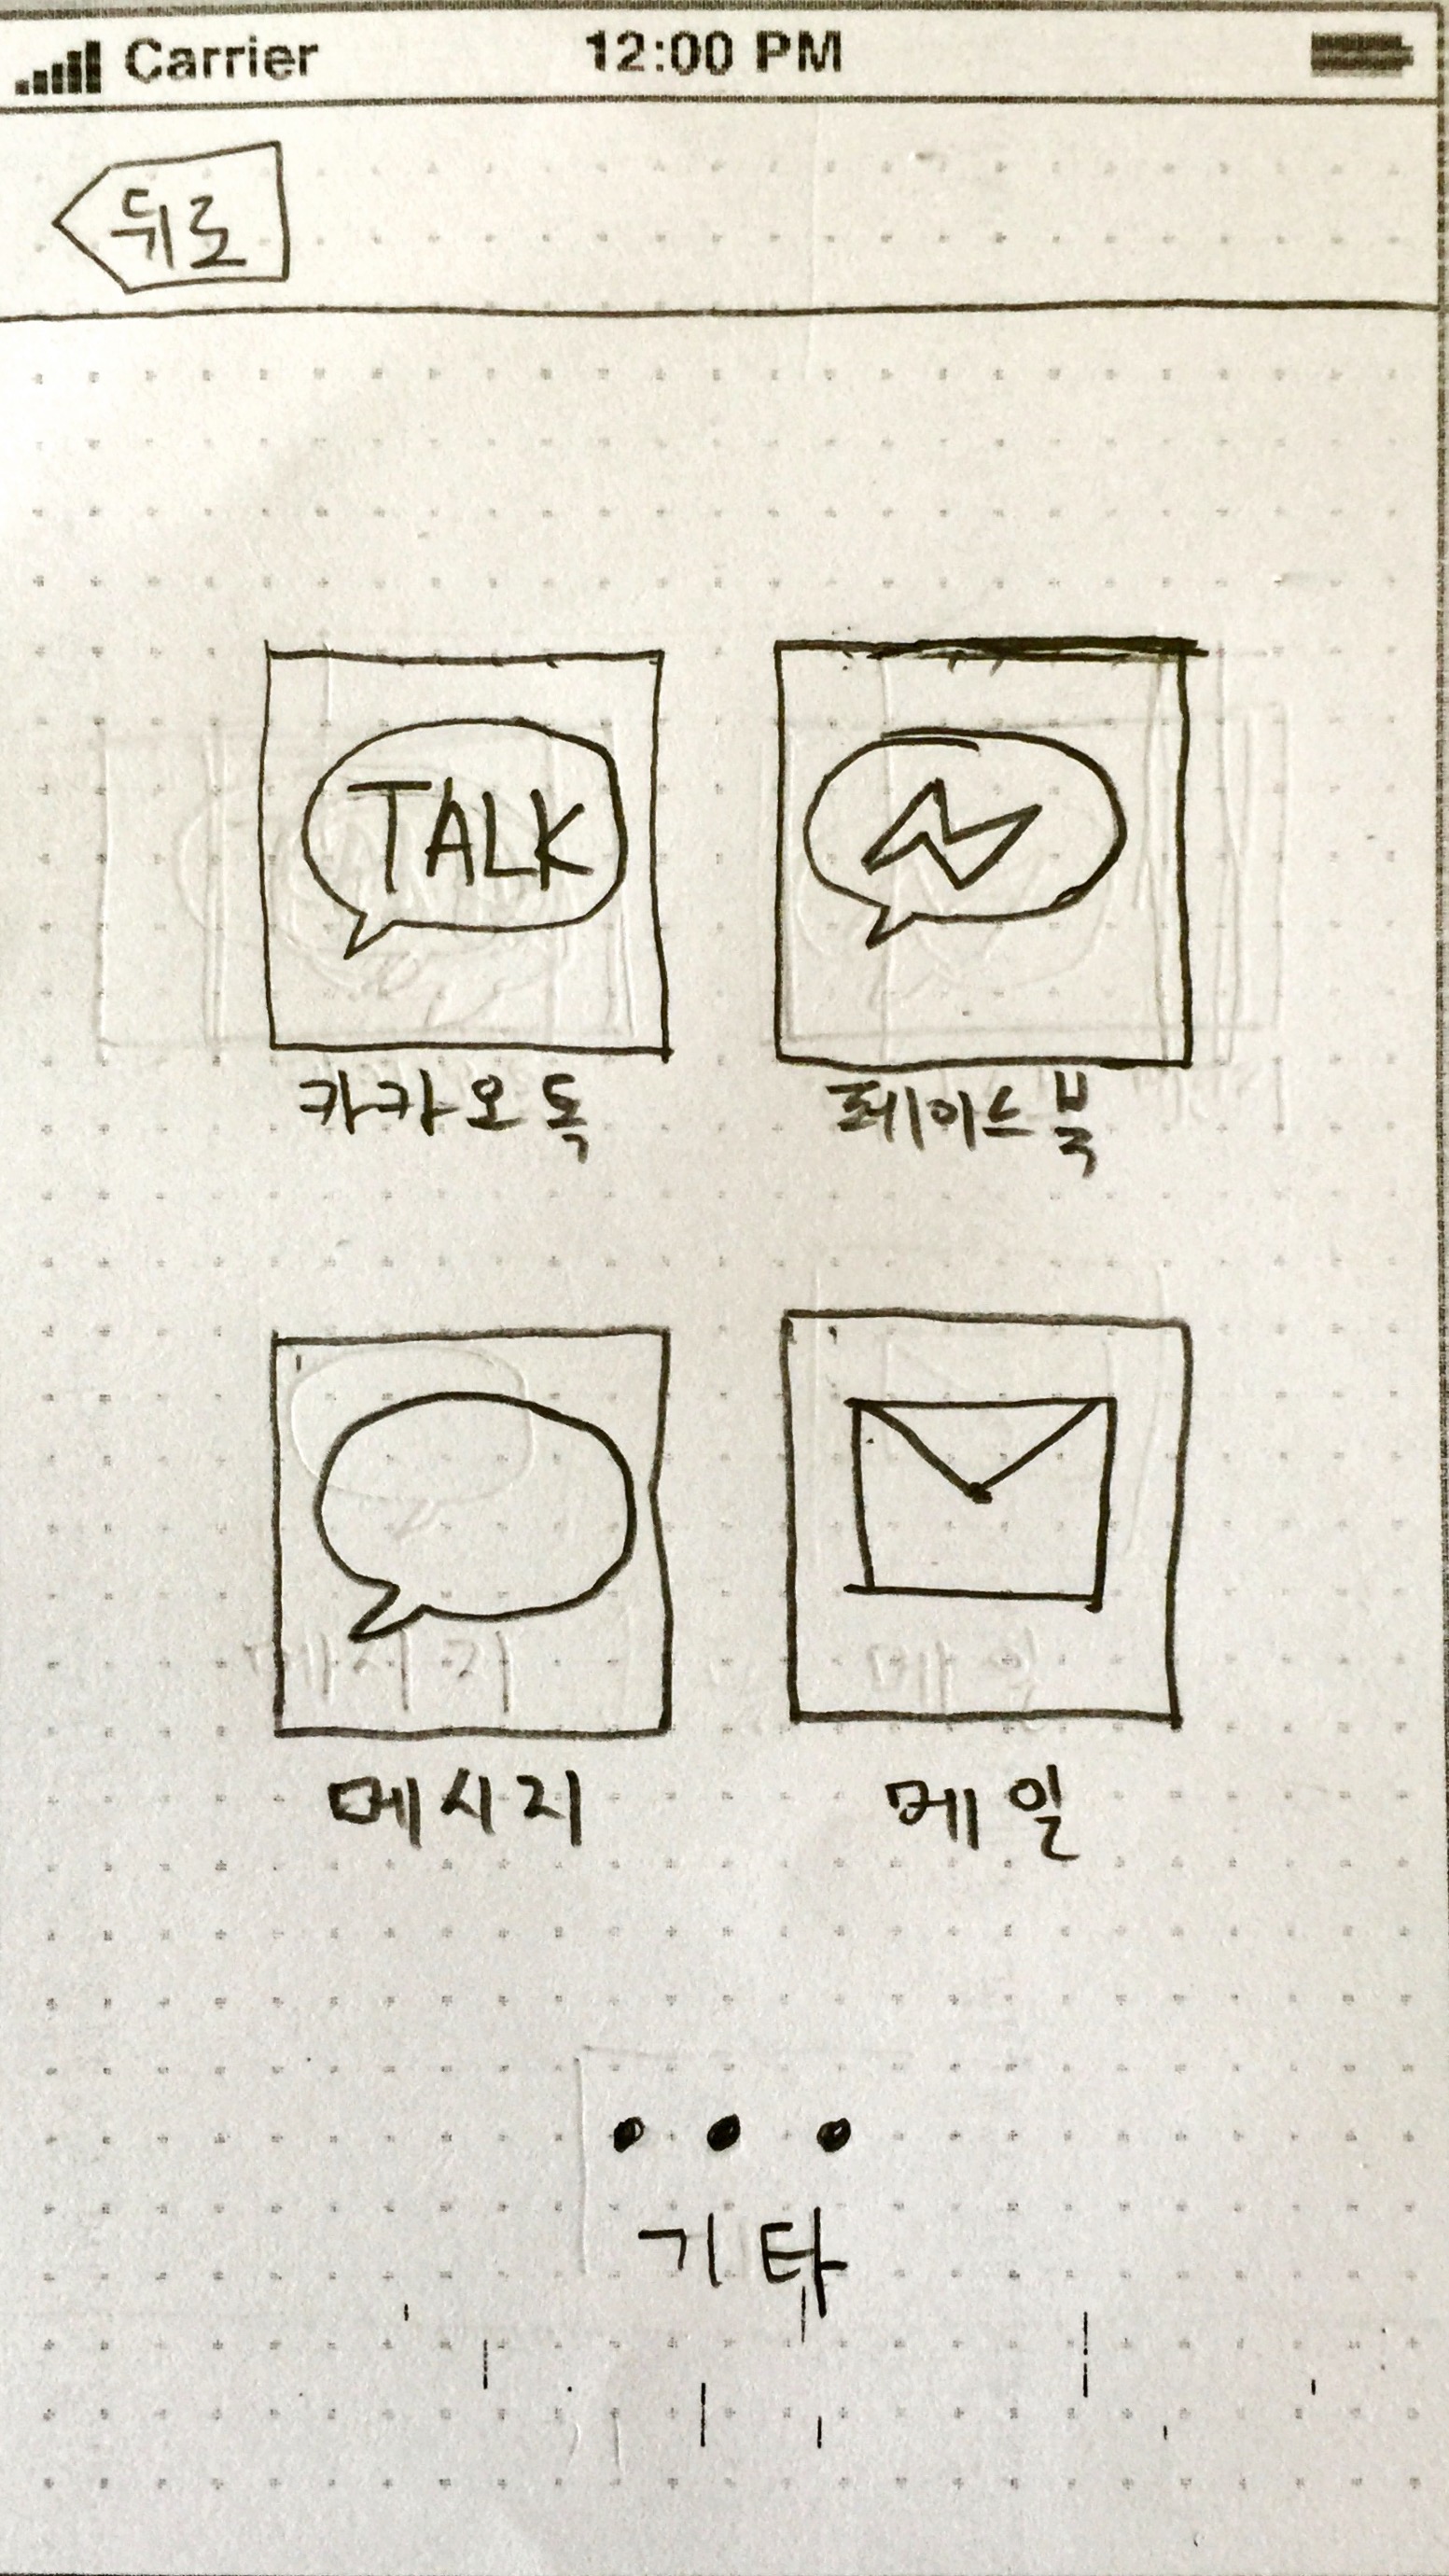 Carrier 12:00 PM
뒤로
TALK
카카오톡 페이스북
메시지 메일
메시지 메일
기타